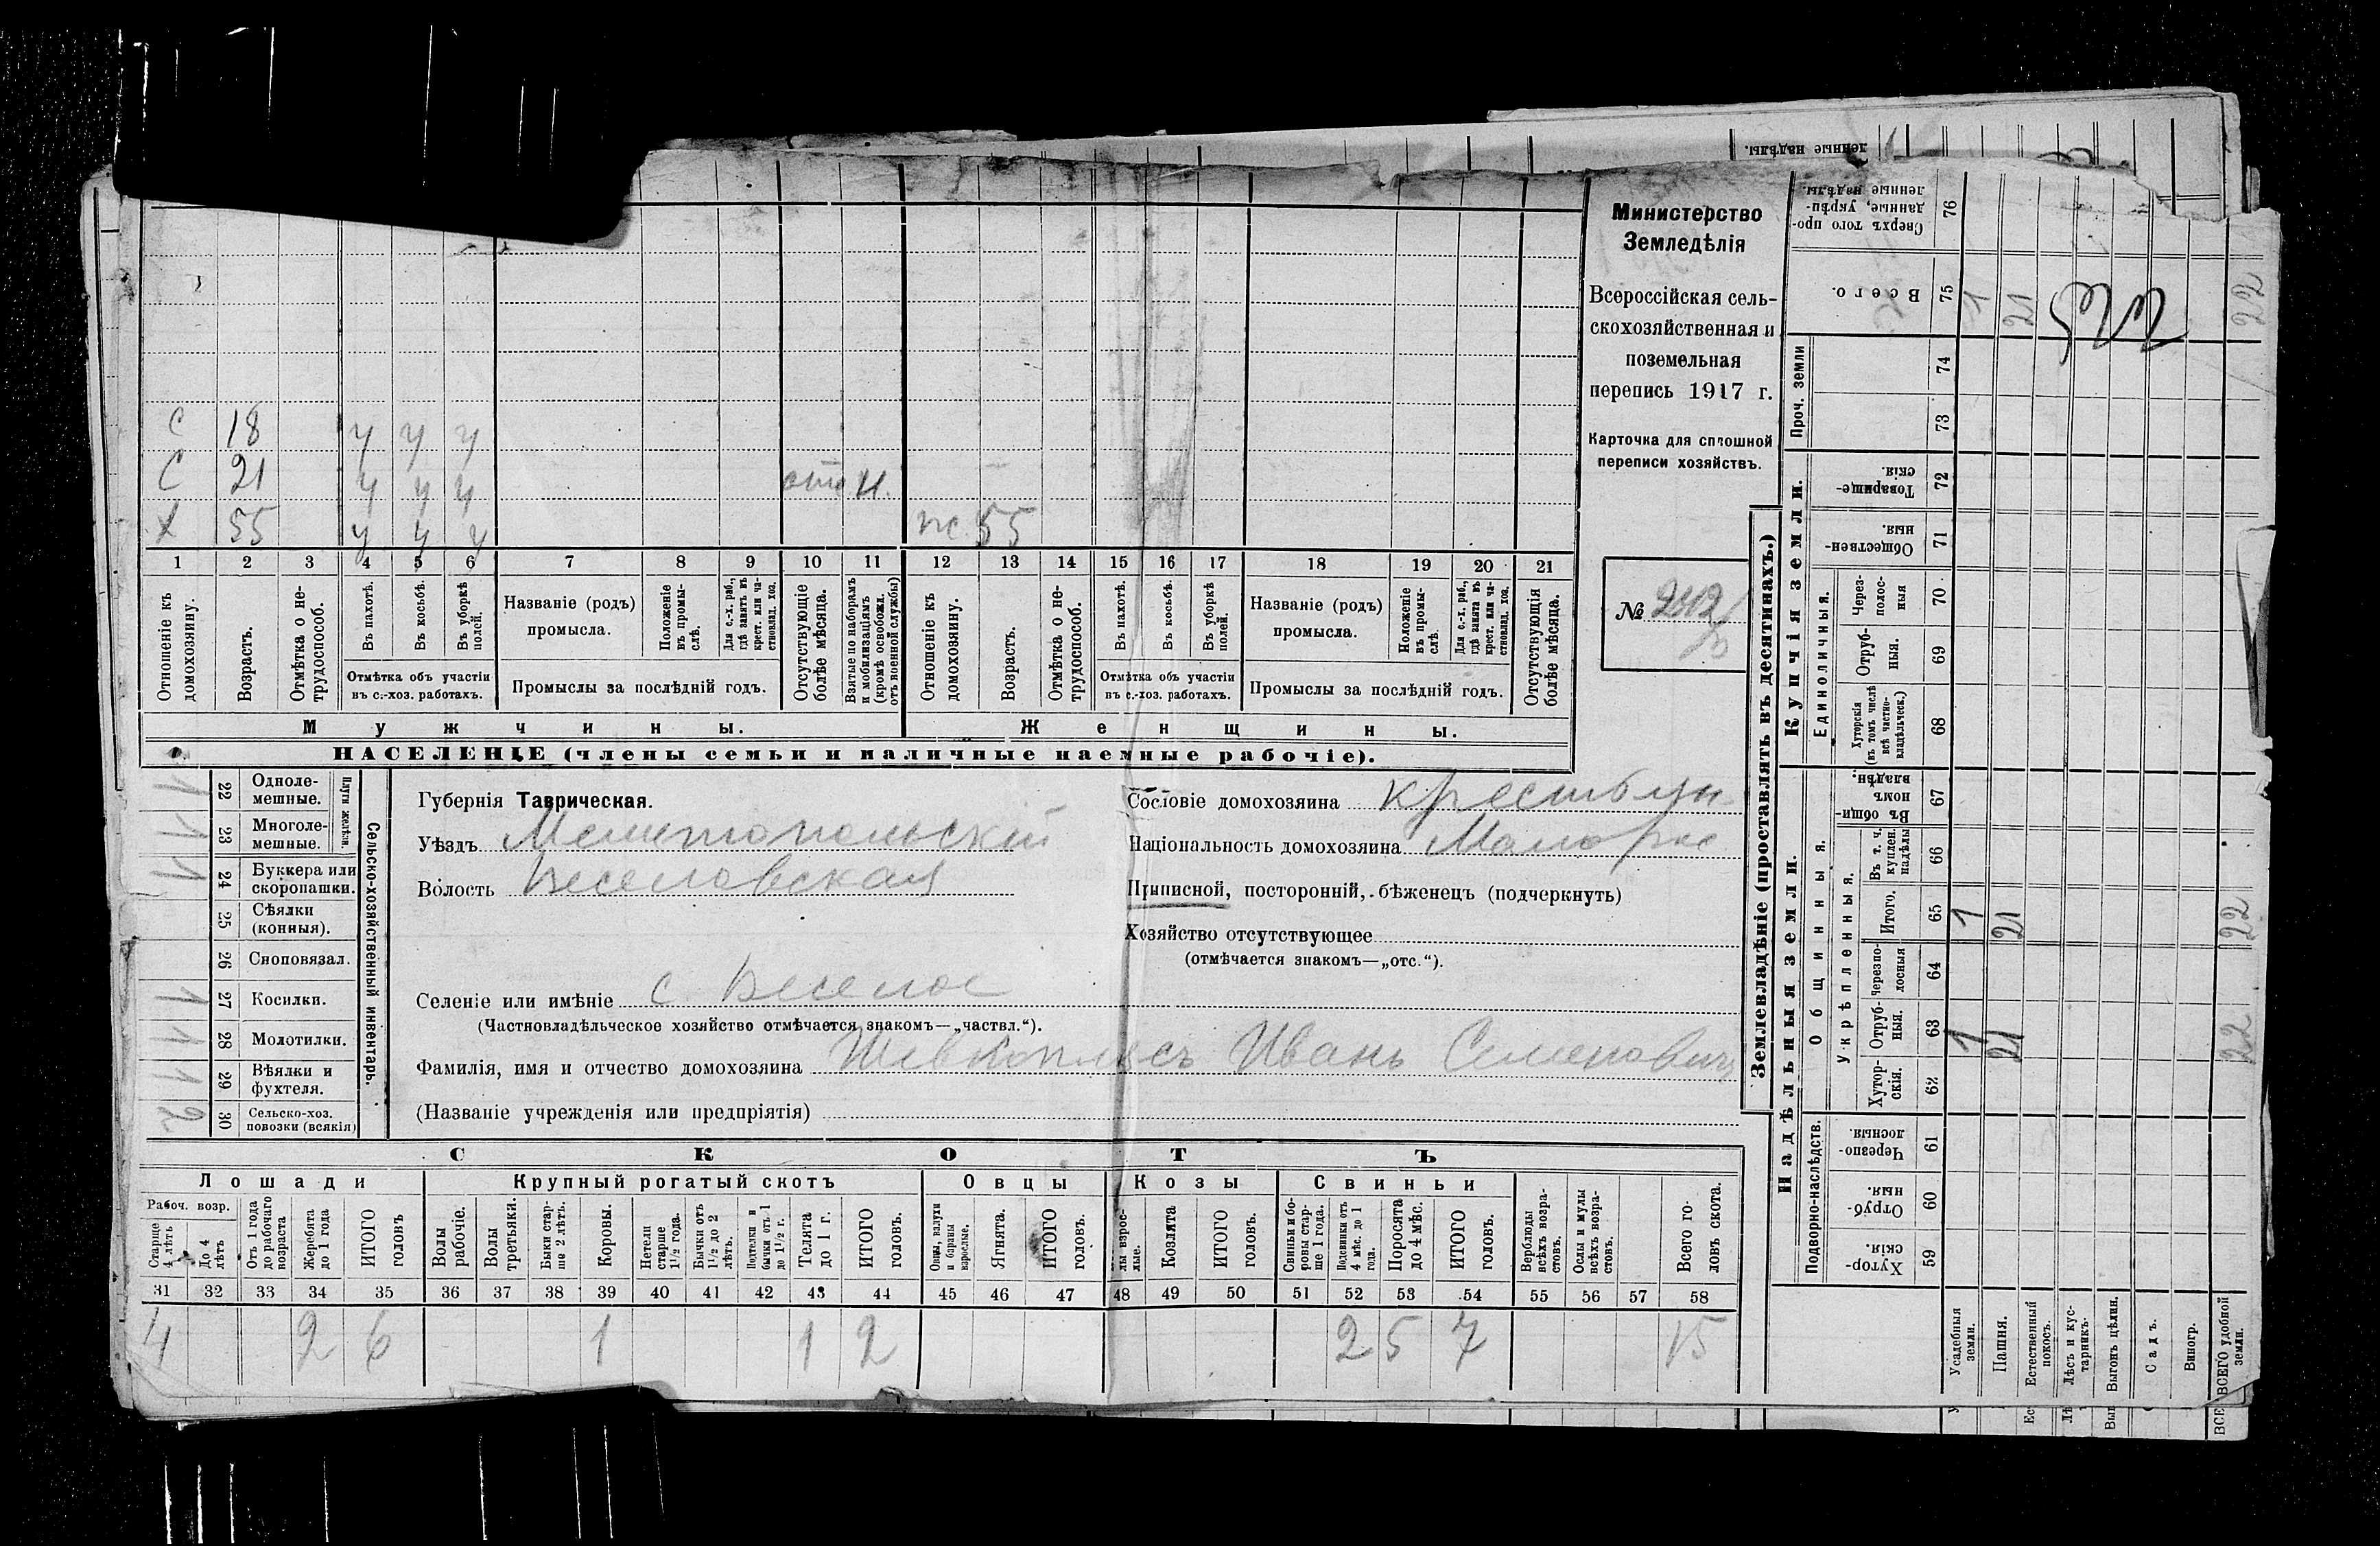 ленные надѣлы.
С 18 у у у
С 21 у у у отс н.
Х 55 у у у ж 55
1 2 3 4 5 6 7 8 9 10 11 12 13 14 15 16 17 18 19 20 21
Отношеніе къ домохозяину.
Возрастъ.
Отмѣтка о не-
трудоспособ.
Въ пахотѣ.
Въ косьбѣ.
Въ уборкѣ
полей.
Отмѣтка объ участіи
въ с.-хоз. работахъ.
Названіе (родъ)
промысла.
Положеніе
въ промы-
слѣ.
Для с.-х. раб.,
гдѣ занятъ въ
крест. или ча-
стновлад. хоз.
Промыслы за послѣдній годъ.
Отсутствующіе
болѣе мѣсяца.
Взятые по наборамъ
и мобилизаціямъ
(кромѣ освобожд.
отъ военной службы)
Отношеніе къ
домохозяину.
Возрастъ.
Отмѣтка о не-
трудоспособ.
Въ пахотѣ.
Въ косьбѣ.
Въ уборкѣ
полей.
Отмѣтка объ участіи
въ с.-хоз. работахъ.
Названіе (родъ)
промысла.
Положеніе
въ промы-
слѣ.
Для с.-х. раб.,
гдѣ занята въ
крест. или ча-
стновлад. хоз.
Промыслы за послѣдній годъ.
Отсутствующія
болѣе мѣсяца.
Мужчины.
Женщины.
НАСЕЛЕНІЕ (члены семьи и наличные наемные рабочіе).
Министерство
Земледѣлія
Всероссійская сель-
скохозяйственная и
поземельная
перепись 1917 г.
Карточка для сплошной
переписи хозяйствъ.
№
1 22 Одноле-
мешные.
1 23 Многоле-
мешные.
Плуги желѣзн.
1 24 Буккера или
скоропашки.
25 Сѣялки
(конныя).
26 Сноповязал.
1 27 Косилки.
1 28 Молотилки.
1 29 Вѣялки и
фухтеля.
2 30 Сельско-хоз.
повозки (всякія)
Сельско-хозяйственный инвентарь.
Губернія Таврическая.
Уѣздъ Мелитопольскій
Волость Веселовская
Селеніе или имѣніе с. Веселое
(Частновладѣльческое хозяйство отмѣчается знакомъ—„частвл.“).
Фамилія, имя и отчество домохозяина Шевкоплясъ Иванъ Семеновичъ
(Названіе учрежденія или предпріятія)
Сословіе домохозяина крестьян
Національность домохозяина Малорос
Приписной, посторонній, бѣженецъ (подчеркнуть)
Хозяйство отсутствующее
(отмѣчается знакомъ—„отс.“).
СКОТЪ
Лошади
Крупный рогатый скотъ
Овцы
Козы
Свиньи
Рабоч. возр.
Старше
4 лѣтъ
До 4
лѣтъ
Отъ 1 года
до рабочаго
возраста
Жеребята
до 1 года
ИТОГО
головъ
Волы
рабочіе.
Волы
третьяки.
Быки стар-
ше 2 лѣтъ.
Коровы.
Нетели
старше
1½ года.
Бычки отъ
1½ до 2
лѣтъ.
Подтелки и
бычки отъ 1
до 1½ г.
Телята
до 1 г.
ИТОГО
головъ.
Овцы, валухи
и бараны
взрослые.
Ягнята.
ИТОГО
головъ.
лы взрос-
лые.
Козлята
ИТОГО
головъ.
Свиньи и бо-
ровы стар-
ше 1 года.
Подсвинки отъ
4 мѣс. до 1
года.
Поросята
до 4 мѣс.
ИТОГО
головъ.
Верблюды
всѣхъ возра-
стовъ.
Ослы и мулы
всѣхъ возра-
стовъ.
Всего го-
ловъ скота.
31 32 33 34 35 36 37 38 39 40 41 42 43 44 45 46 47 48 49 50 51 52 53 54 55 56 57 58
4 2 6 1 1 2 2 5 7 15
Землевладѣніе (проставлять въ десятинахъ.)
Надѣльныя земли.
Купчія земли.
Проч. земли
Подворно-наслѣдств.
Общинныя.
Укрѣпленныя.
Единоличныя.
Сверхъ того про-
данные, укрѣп-
ленные надѣлы.
76
Всего.
75 1 21 22
74
73
Товарище-
скія.
72
Обществен-
ныя.
71
Через-
полос-
ныя
70
Отруб-
ныя.
69
Хуторскія
(въ томъ числѣ
всѣ частно-
владѣльческ.)
68
Въ общи-
номъ
владѣн.
67
Въ т. ч.
куплен.
надѣлы
66
Итого.
65 1 21 22
Черезпо-
лосныя
64
Отруб-
ныя.
63 1 21 22
Хутор-
скія.
62
Черезпо-
лосныя.
61
Отруб-
ныя.
60
Хутор-
скія.
59
Усадебныя
земли.
Пашня.
Естественный
покосъ.
Лѣсъ и кус-
тарникъ.
Выгонъ цѣлин.
Садъ.
Виногр.
ВСЕГО удобной
земли.